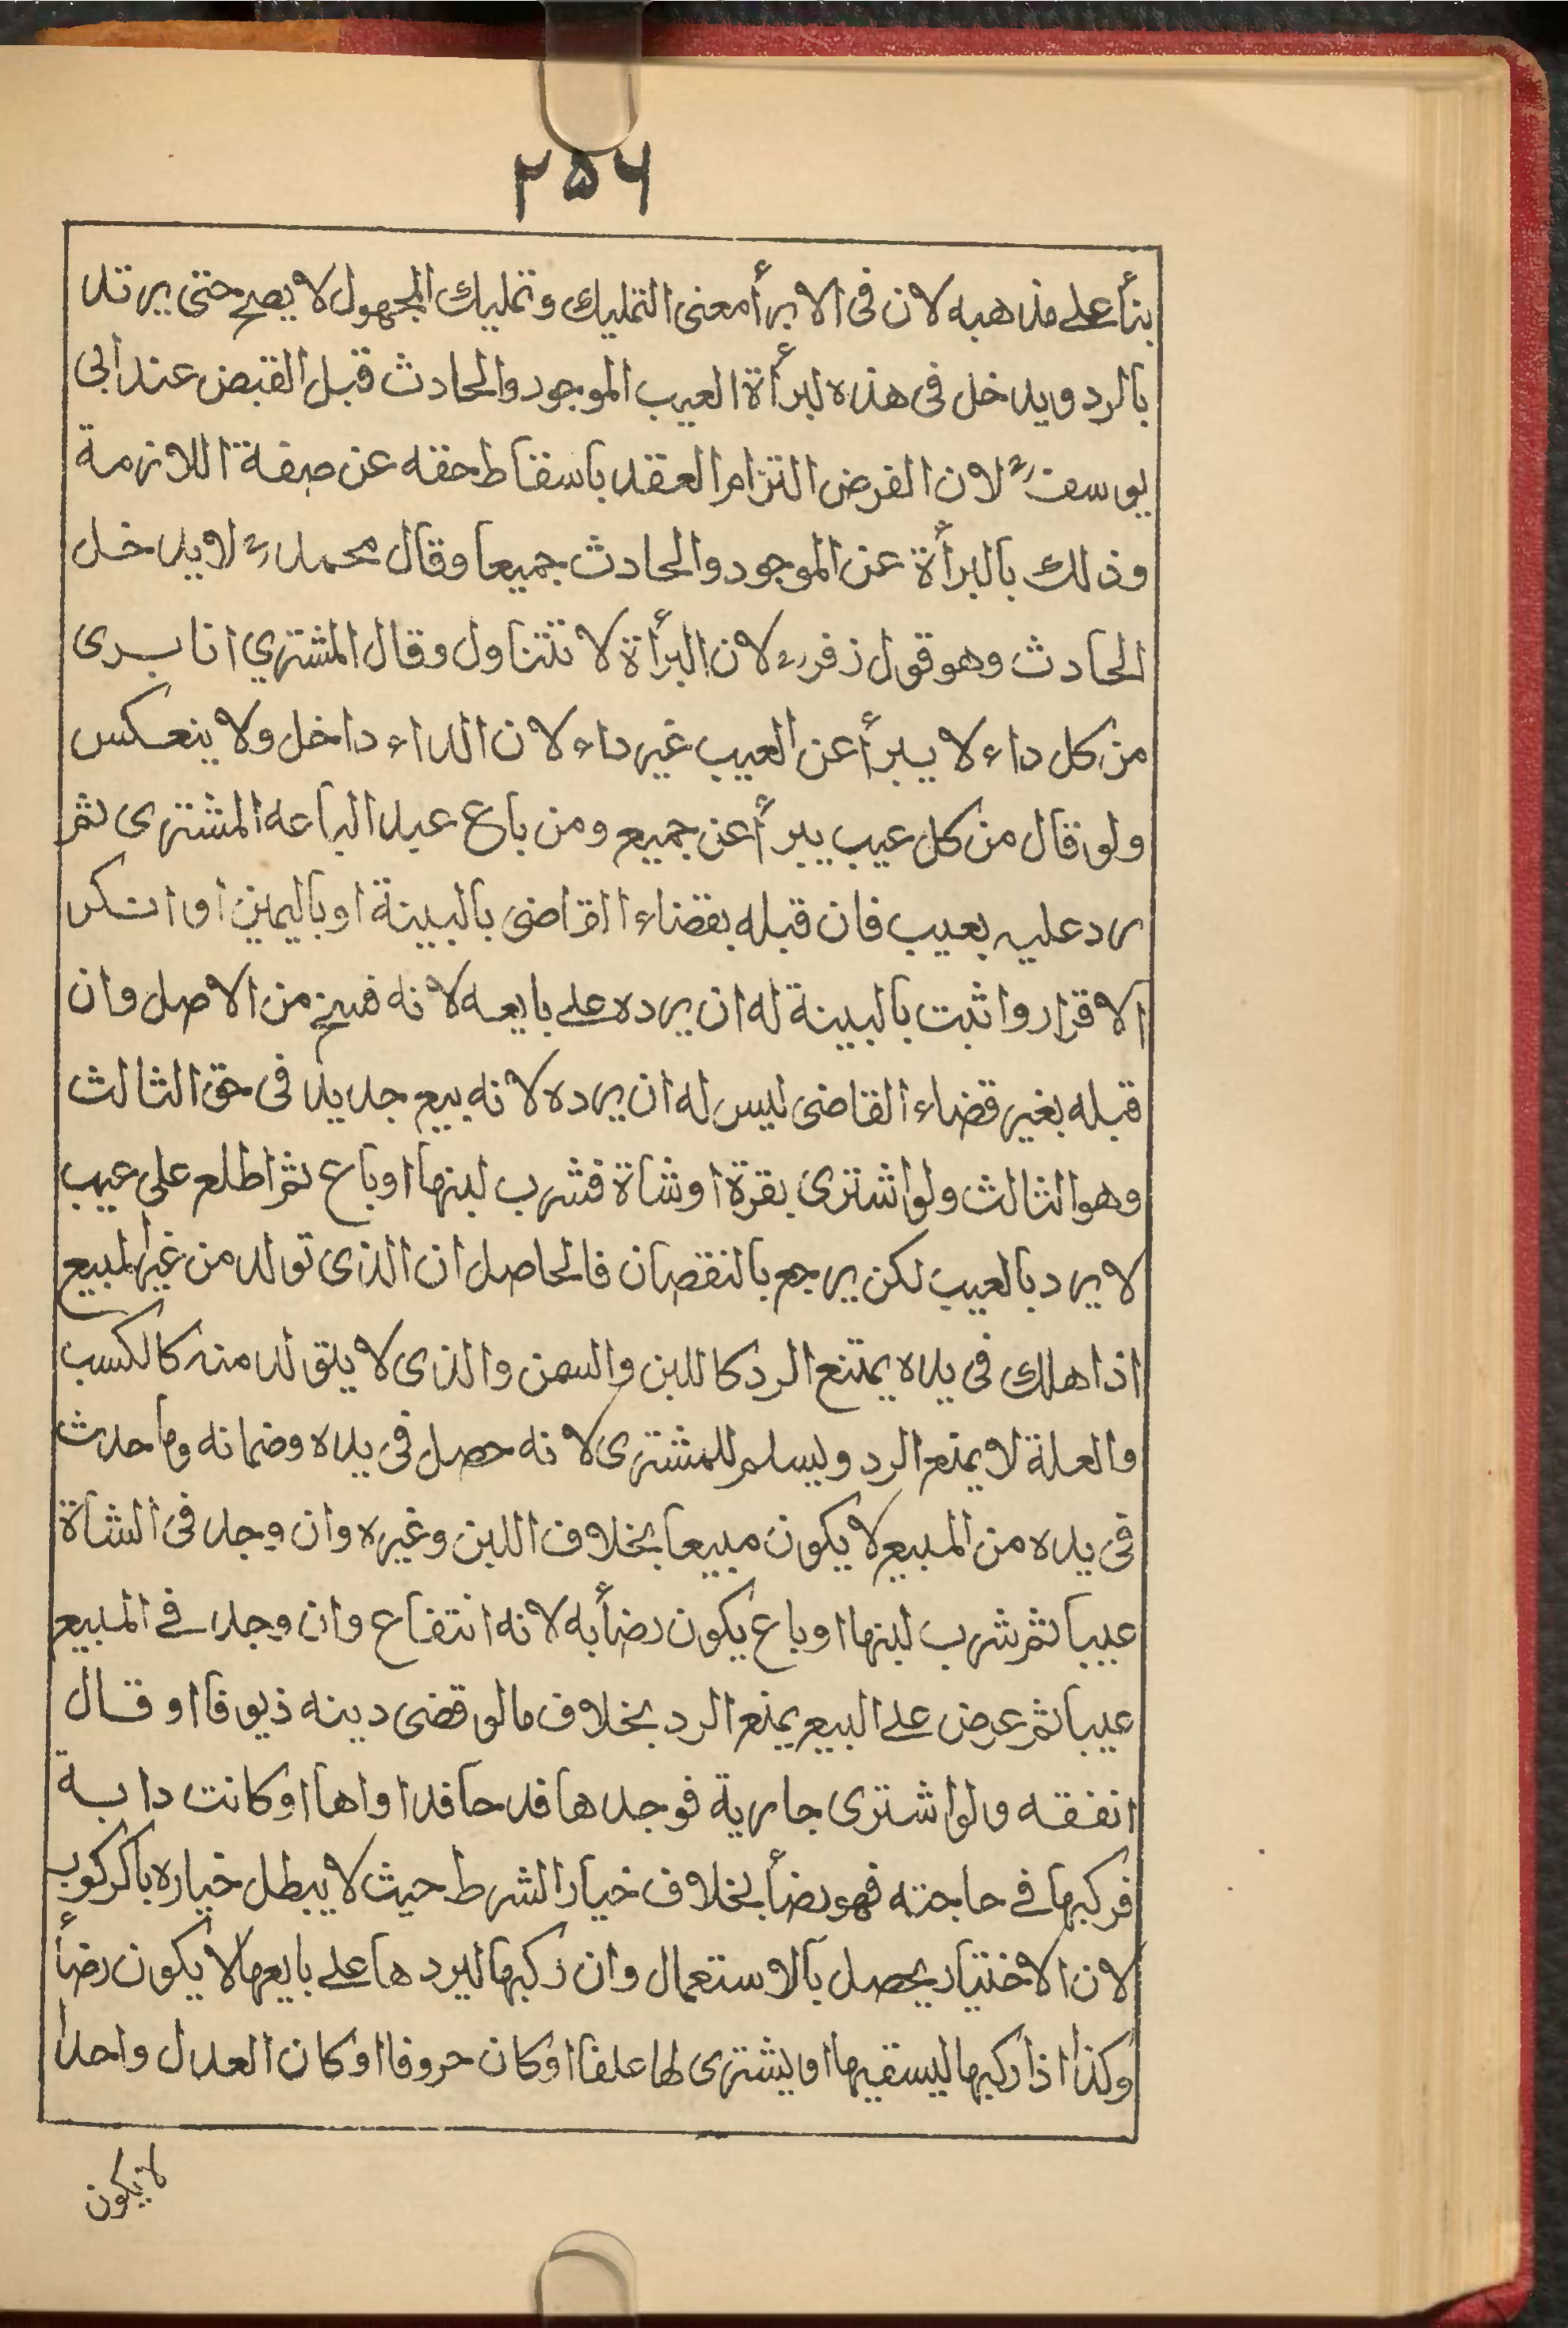 ٢٥٦
بنأ على مذهبه لان فى الابرأ معنى التمليك وتمليك المجهول لا يصح حتى يرتد
بالرد ويدخل فى هذه لبرأة العيب الموجود والحادث قبل القبض عند ابى
يوسف رح لان الغرض التزام العقد باسقاط حقه عن صفة اللازمة
وذلك بالبرأة عن الموجود والحادث جميعا وقال محمد رح لا يدخل
الحادث وهو قول زفر رح لان البرأة لا تتناول وقال المشتري انا برى
من كل داء لا يبرأ عن العيب غير داء لان الداء داخل ولا ينعكس
ولو قال من كل عيب يبرأ عن جميع ومن باع عبد الباعه المشترى ثم
رد عليه بعيب فان قبله بقضاء القاضى بالبينة او باليمين او انكر
الاقرار واثبت بالبينة له ان يرده على بايعه لانه فسخ من الاصل وان
قبله بغير قضاء القاضى ليس له ان يرده لانه بيع جديد فى حق الثالث
وهو الثالث ولو اشترى بقرة او شاة فشرب لبنها او باع ثم اطلع على عيب
لا يرد بالعيب لكن يرجع بالنقصان فالحاصل ان الذى تولد من غير المبيع
اذا هلك فى يده يمتنع الرد كاللبن والسمن والذى لا يتولد منه كالكسب
والعلة لا يمنع الرد ويسلم للمشترى لانه حصل فى يده وضمانه وما حدث
فى يده من المبيع لا يكون مبيعا بخلاف اللبن وغيره وان وجد فى الشاة
عيبا ثم شرب لبنها او باع يكون رضأ به لانه انتفاع وان وجد فى المبيع
عيبا ثم عرض على البيع يمنع الرد بخلاف ما لو قضى دينه ذيوفا او قال
انفقه ولو اشترى جارية فوجدها قد حا فداواها او كانت دابة
فركبها فى حاجته فهو رضأ بخلاف خيار الشرط حيث لا يبطل خياره باكركوب
لان الاختيار يحصل بالاستعمال وان ركبها ليردها على بايعها لا يكون رضأ
وكذا اذا ركبها ليسقيها او يشترى لها علفا او كان حروفا او كان العدل واحدا
لا يكون